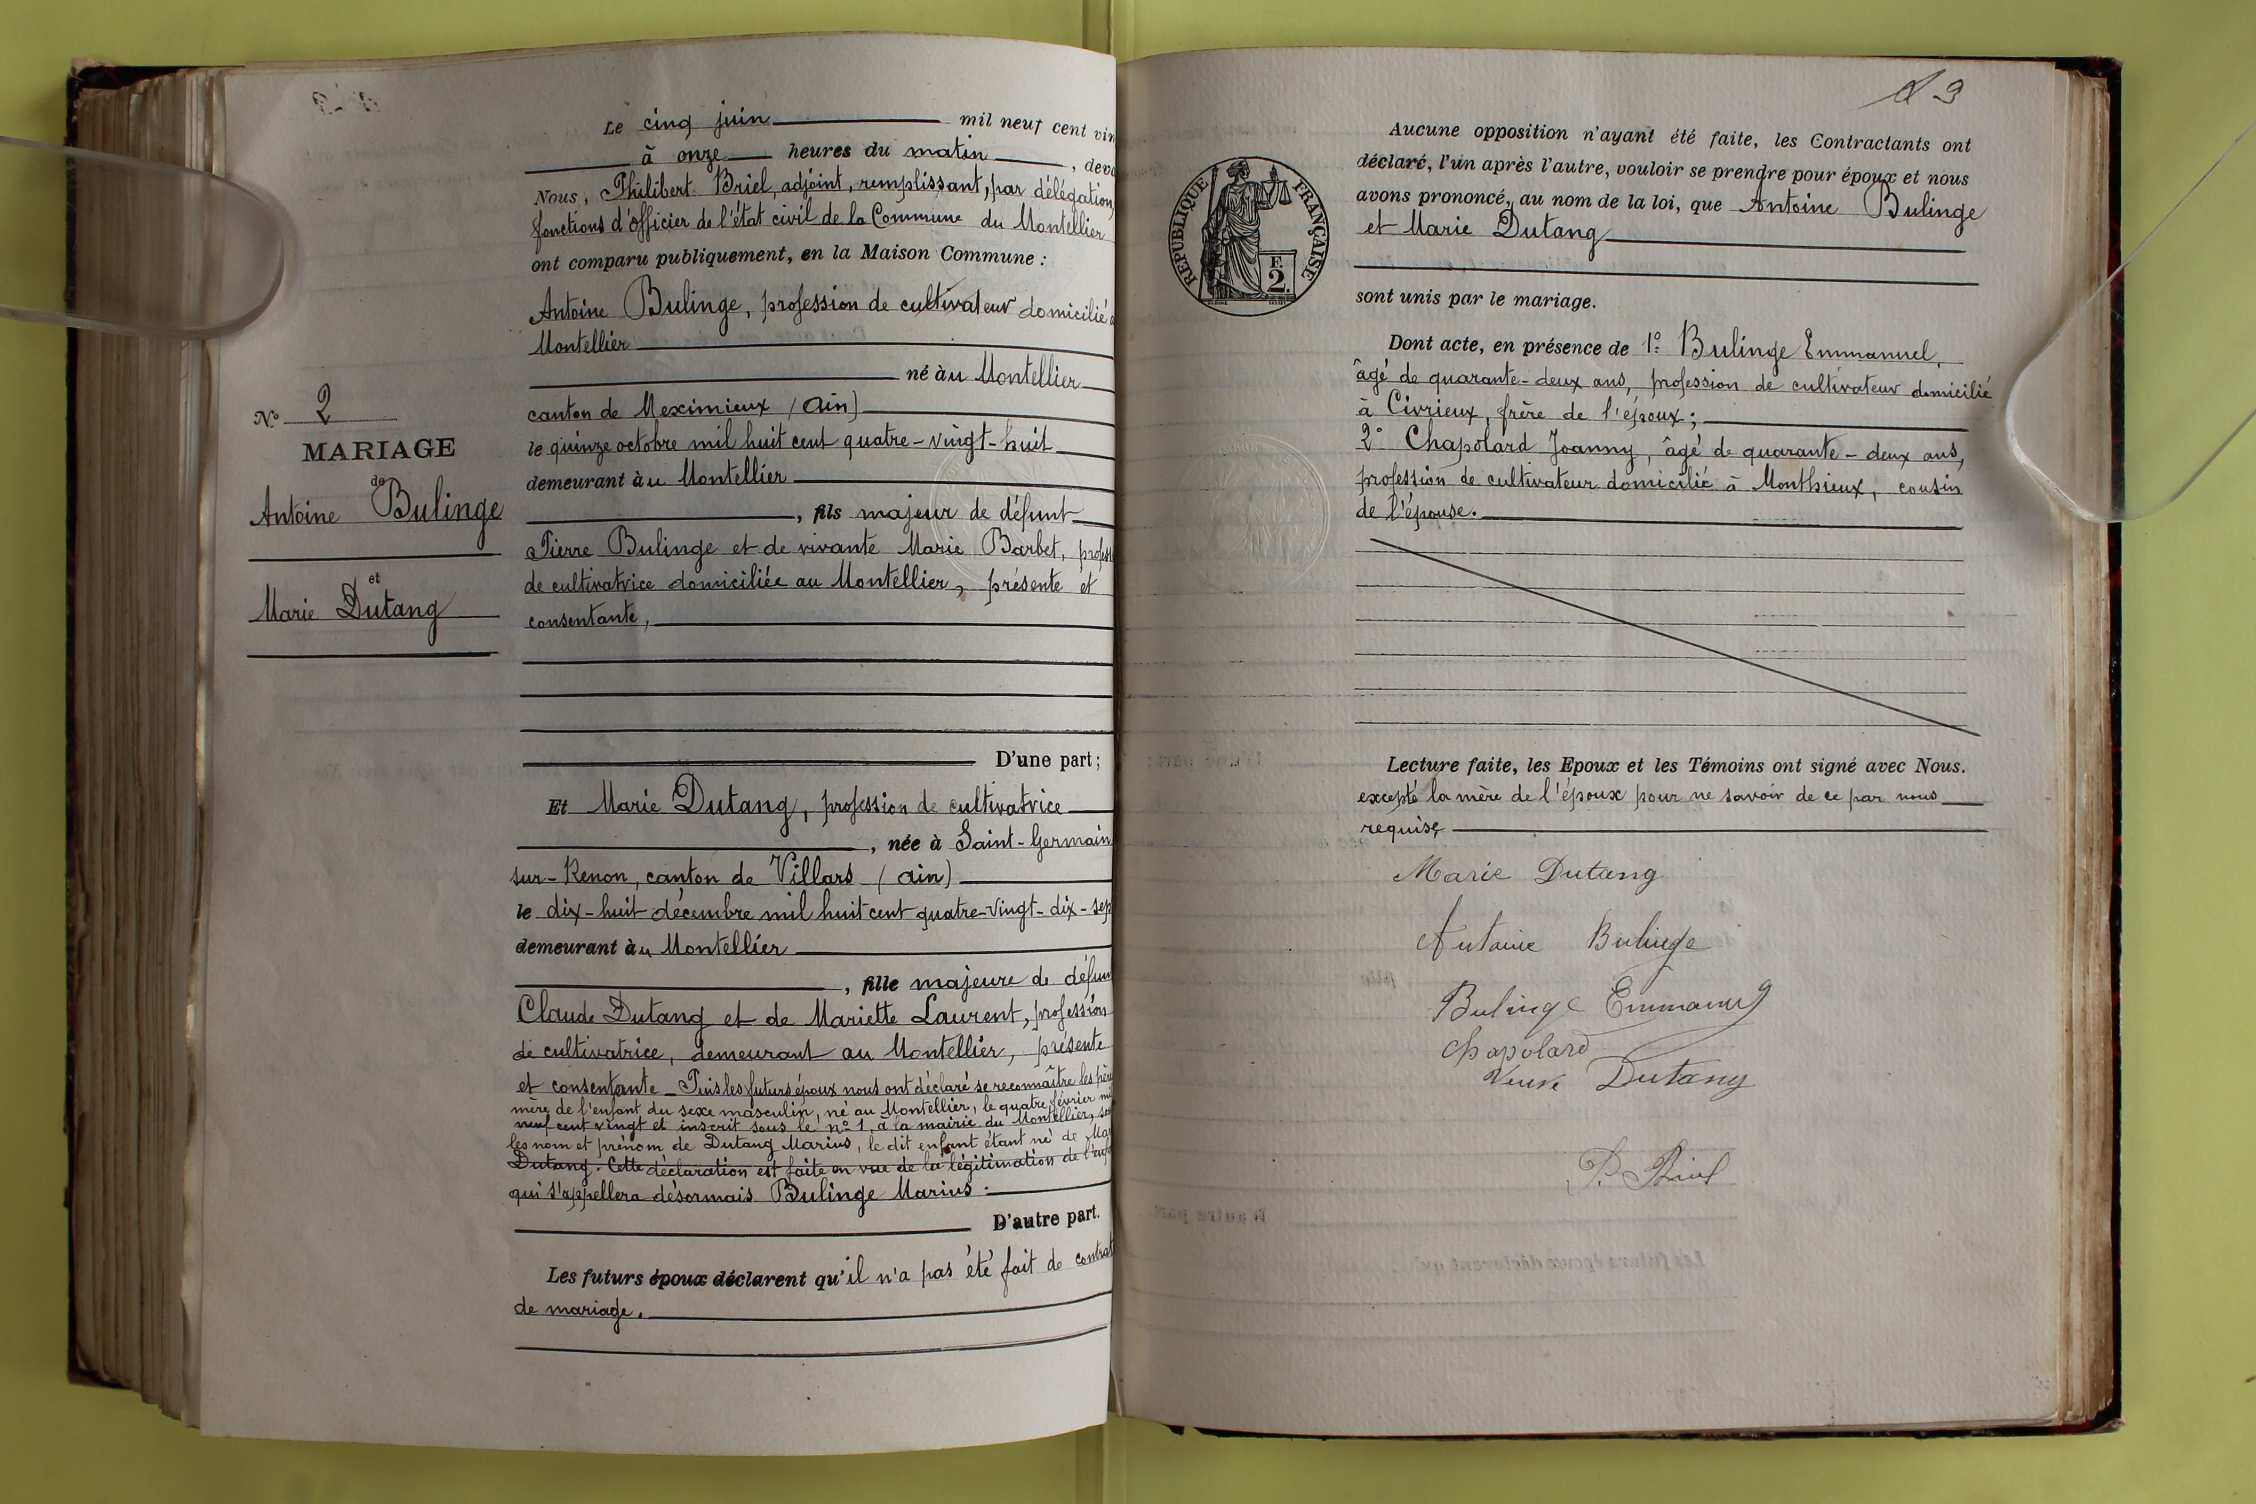 Le cinq juin mil neuf cent vin
à onze heures du matin, deva
Nous, Philibert Briel, adjoint, remplissant, par délégation,
fonctions d'officier de l'état civil de la Commune du Montellier
ont comparu publiquement, en la Maison Commune :
Antoine Bulinge, profession de cultivateur domicilié a
Montellier
né àu Montellier
canton de Meximieux (Ain)
le quinze octobre mil huit cent quatre-vingt-huit
demeurant àu Montellier
, fils majeur de défunt
Pierre Bulinge et de vivante Marie Barbet, profess
de cultivatrice domiciliée au Montellier, présente et
consentante,
D'une part;
N° 2
MARIAGE
de
Antoine Bulinge
et
Marie Dutang
Et Marie Dutang, profession de cultivatrice
, née à Saint-Germain
sur-Renon, canton de Villars (Ain)
le dix-huit décembre mil huit cent quatre-vingt-dix-sep
demeurant àu Montellier
, fille majeure de défun
Claude Dutang et de Mariette Laurent, profession
de cultivatrice, demeurant au Montellier, présente
et consentante _ Puis les futurs époux nous ont déclaré se reconnaître les père
mère de l'enfant du sexe masculin, né au Montellier, le quatre février mi
neuf cent vingt et inscrit sous le n° 1, à la mairie du Montellier, sou
les nom et prénom de Dutang Marius, le dit enfant étant né de Mar
Dutang. Cette déclaration est faite en vue de la légitimation de l'enfa
qui s'appellera désormais Bulinge Marius.
D'autre part.
Les futurs époux déclarent qu'il n'a pas été fait de contrat
de mariage.
3
RÉPUBLIQUE FRANÇAISE
F.
2.
Aucune opposition n'ayant été faite, les Contractants ont
déclaré, l'un après l'autre, vouloir se prendre pour époux et nous
avons prononcé, au nom de la loi, que Antoine Bulinge
et Marie Dutang
sont unis par le mariage.
Dont acte, en présence de 1° Bulinge Emmanuel,
âgé de quarante-deux ans, profession de cultivateur domicilié
à Civrieux, frère de l'époux;
2° Chapolard Joanny, âgé de quarante-deux ans,
profession de cultivateur domicilié à Monthieux, cousin
de l'épouse.
Lecture faite, les Epoux et les Témoins ont signé avec Nous.
excepté la mère de l'époux pour ne savoir de ce par nous
requise
Marie Dutang
Antoine Bulinge
Bulinge Emmanuel
Chapolard
Veuve Dutang
P. Briel